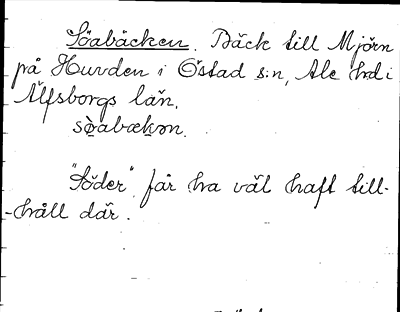 Söabäcken. Bäck till Mjörn
på Hurvden i Östad s:n, Ale hd i
Älfsborgs län.
sø̀abækən.
"Söder" får ha väl haft till-
-håll där.